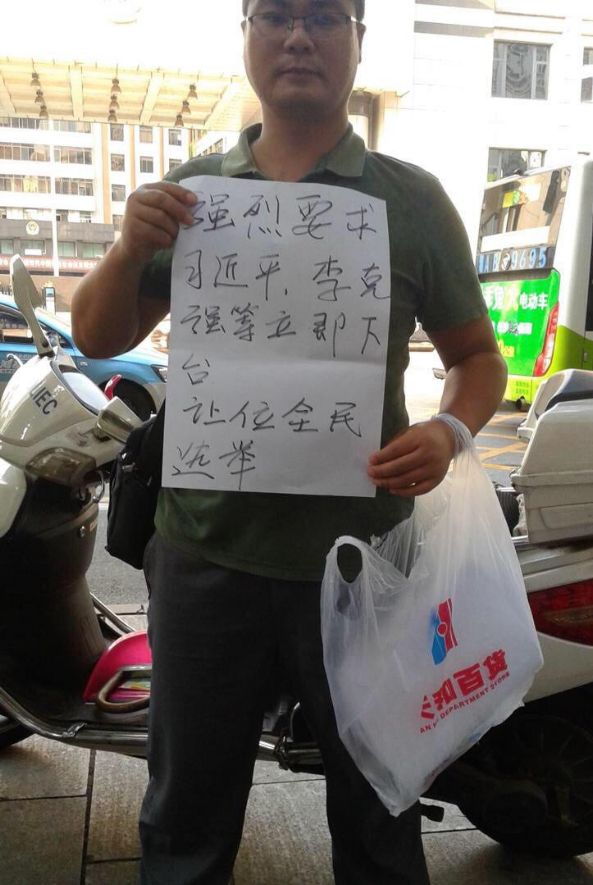 强烈要求
习近平，李克
强等立即下
台
让位全民
选举
IEC
电动车
9695
百
DEPARTMENT STORE